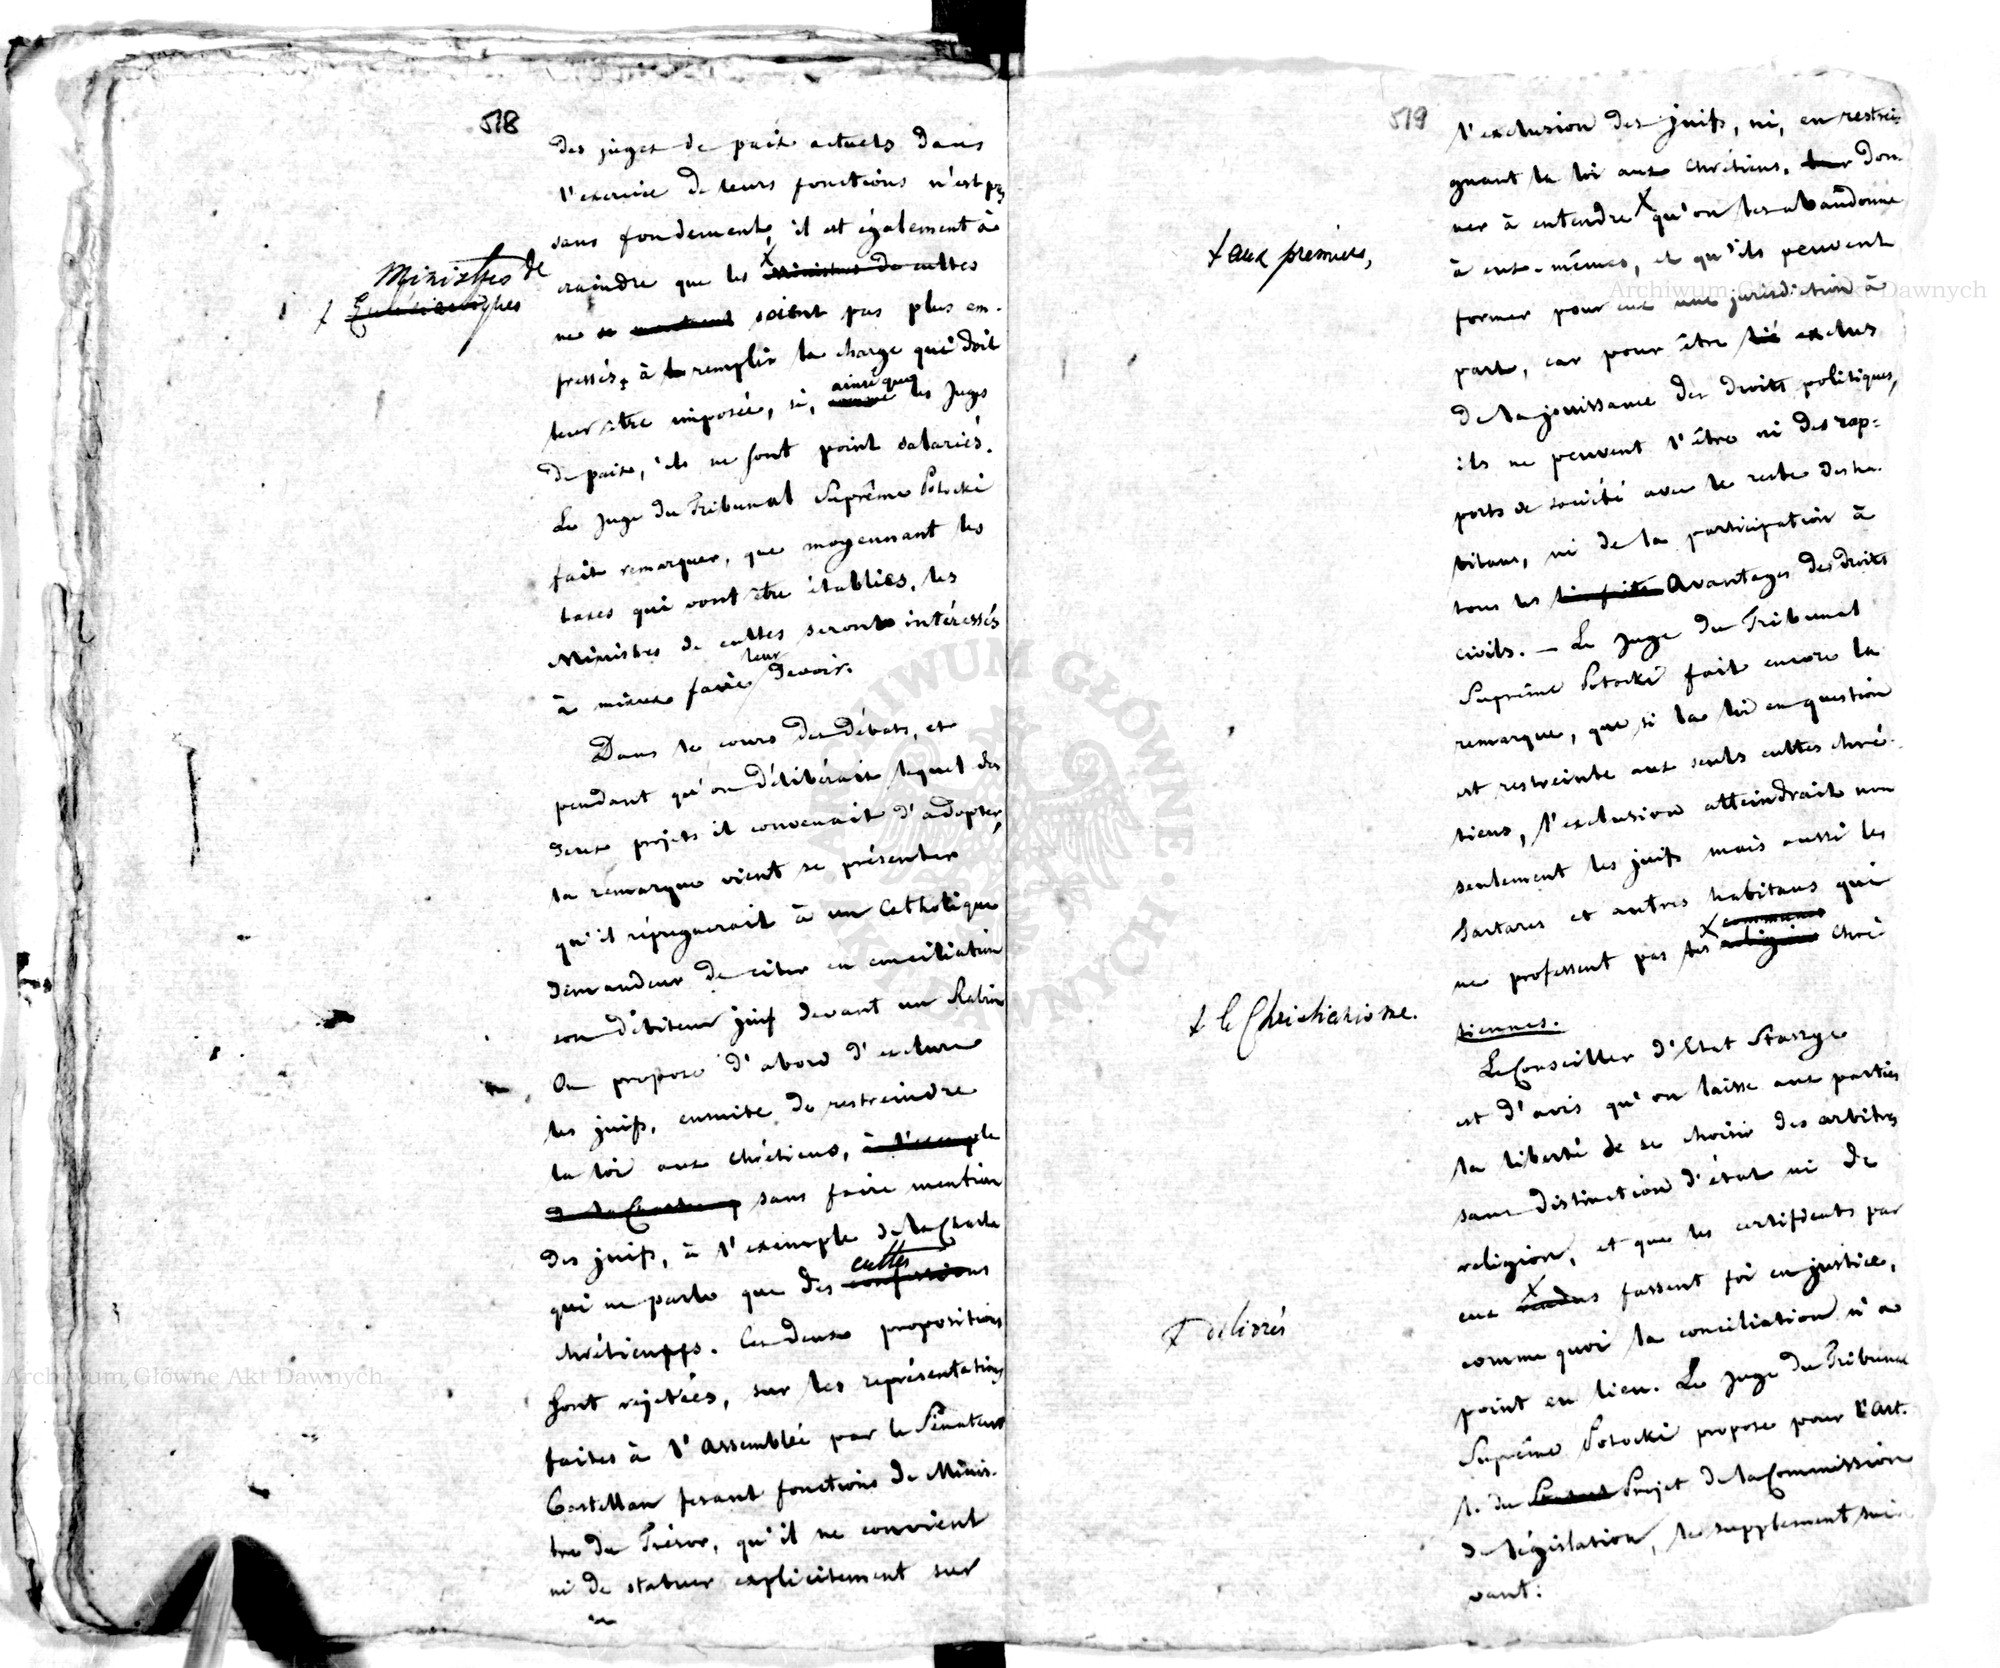 518
des juges de paix actuels dans
l'exercice de leurs fonctions n'est pas
sans fondement, il est également à
craindre que les × Ministres de cultes
Ministres de
× Ecclésiastiques
ne se montrent soient pas plus em-
pressés, à remplir la charge qui doit
leur être imposée, si, ainsi que les Juges
de paix, ils ne sont point salariés.
Le Juge du Tribunal Suprême Potocki
fait remarquer, que moyennant les
taxes qui vont être établies, les
Ministres de cultes seront intéressés
à mieux faire leur devoir.
Dans le cours des débats, et
pendant qu'on délibérait lequel des
deux projets il convenait d'adopter,
la remarque vient se présenter
qu'il répugnerait à un Catholique
demandeur de citer en conciliation
son débiteur juif devant un Rabin
On propose d'abord d'exclure
les juifs, ensuite de restreindre
la loi aux chrétiens, à l'exemple
de la Charte sans faire mention
des juifs, à l'exemple de la Charte
qui ne parle que des confessions cultes
chrétiens. Ces deux propositions
sont rejetées, sur les représentations
faites à l'Assemblée par le Sénateur
Castellan fesant fonctions de Minis-
tre du Trésor, qu'il ne convient
ni de statuer explicitement sur
519
l'exclusion des juifs, ni, en restrei-
gnant la loi aux chrétiens, leur don-
ner à entendre × qu'on les abandonne
× aux premiers,
à eux-mêmes, et qu'ils peuvent
former pour eux une jurisdiction à
part, car pour être exclus
de la jouissance des droits politiques,
ils ne peuvent l'être ni des rap-
ports de société avec le reste des ha-
bitans, ni de la participation à
tous les avantages des droits
civils. — Le Juge du Tribunal
Suprême Potocki fait encore la
remarque, que si la loi en question
est restreinte aux seuls cultes chré-
tiens, l'exclusion atteindrait non
seulement les juifs mais aussi les
tartares et autres habitans qui
ne professent pas les × religions communes chré-
× le Christianisme.
tiennes.
Le Conseiller d'Etat Staszyc
est d'avis qu'on laisse aux parties
la liberté de se choisir des arbitres
sans distinction d'état ni de
religion, et que les certificats par
eux × rendus fassent foi en justice,
× délivrés
comme quoi la conciliation n'a
point eu lieu. Le Juge du Tribunal
Suprême Potocki propose pour l'Art.
1. du Projet de la Commission
de législation, le supplement sui-
vant:
Archiwum Główne Akt Dawnych
Archiwum Główne Akt Dawnych
ARCHIWUM GŁÓWNE · AKT DAWNYCH ·